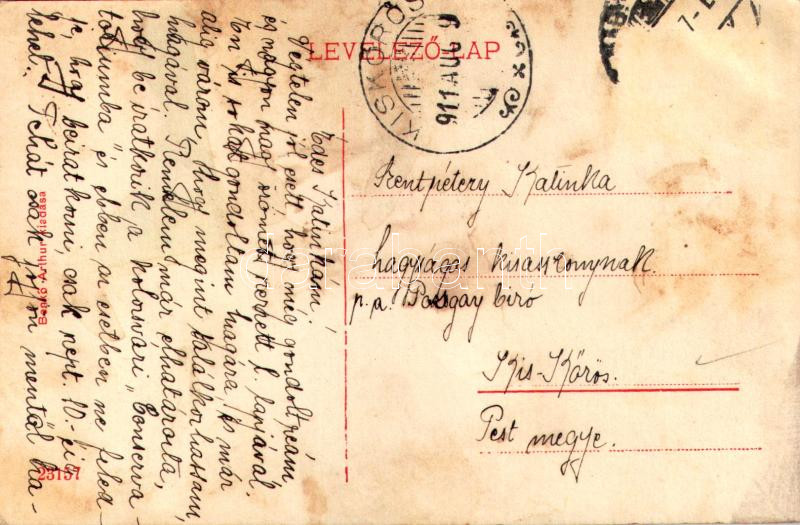 LEVELEZŐ-LAP
KISKŐRÖS
911 AUG 9
Édes Katinkám!
Végtelen jól esett hogy még gondolt reám
és nagyon nagy örömet szerzett l. lapjával.
Én is sokat gondoltam magára és már
alig várom hogy megint találkozhassam
magával. Remélem már elhatározta,
hogy be iratkozik a kolozsvári „Conserva-
tóriumba" és ebben az esetben ne feled-
je, hogy beiratkozni csak szept. 10.-éig
lehet. Tehát csak jöjjön mentől ha-
Szentpétery Katinka
nagyságos kisasszonynak.
p. a. Pozsgay biró
Kis-Kőrös.
Pest megye.
Benkő Arthur kiadása
23157
darabanth